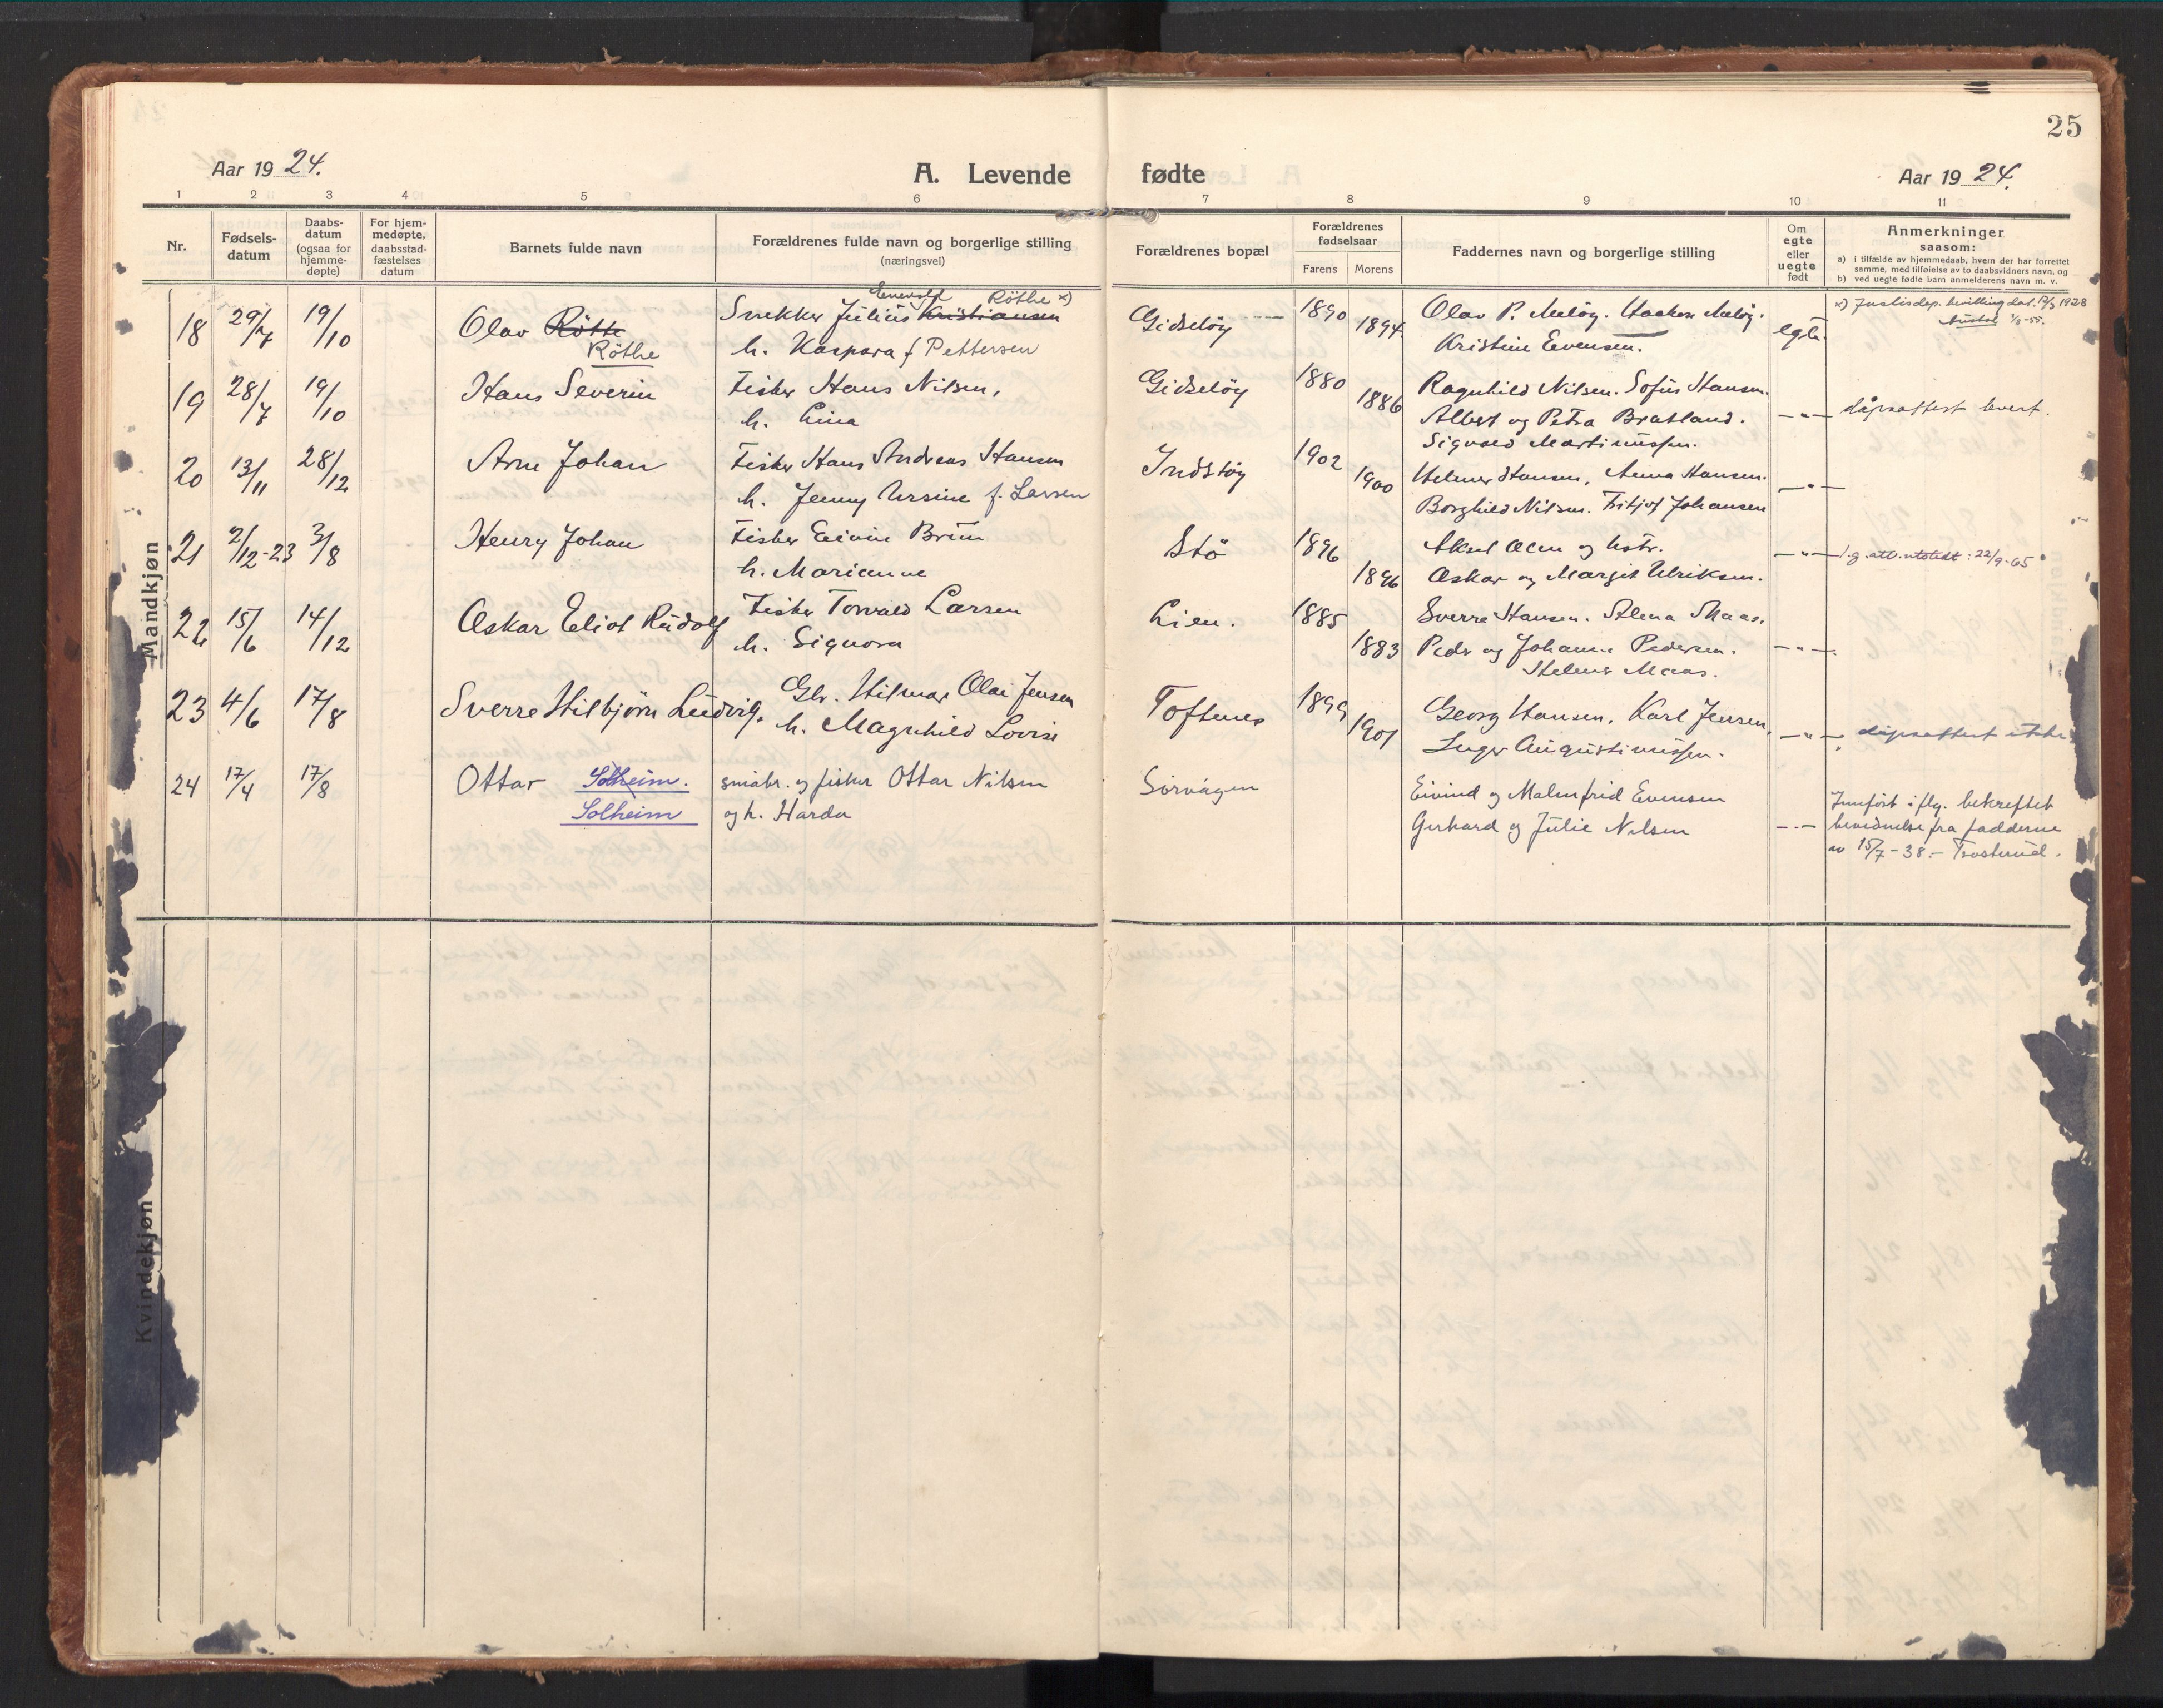 25
Aar 19 24.
A. Levende
fødte
Aar 19 24.
1 2 3 4 5 6 7 8 9 10 11
Nr.
Fødsels-
datum
Daabs-
datum
(ogsaa for
hjemme-
døpte)
For hjem-
medøpte,
daabsstad-
fæstelses
datum
Barnets fulde navn
Forældrenes fulde navn og borgerlige stilling
(næringsvei)
Forældrenes bopæl
Forældrenes
fødselsaar
Farens Morens
Faddernes navn og borgerlige stilling
Om
egte
eller
uegte
født
Anmerkninger
saasom:
a) i tilfælde av hjemmedaab, hvem der har forrettet
samme, med tilføielse av to daabsvidners navn, og
b) ved uegte fødte barn anmelderens navn m. v.
Mandkjøn
18 29/7 19/10 Olav Rötte
Röthe
Snekker Julius Kristiansen Röthe x)
h. Kaspara f Pettersen
Gidsløy 1890 1894
Olav P. Meløy. Haakon Meløy.
Kristine Evensen.
egte.
x) Justisdep. bevilling dat. 1928
19 28/7 19/10 Hans Severin
Fisker Hans Nilsen,
h. Lina
Gidsløy 1880 1886
Ragnhild Nilsen. Sofus Hansen.
Albert og Petra Bratland.
Sigvald Martinussen.
— " — dåpsattest levert.
20 13/11 28/12 Arne Johan
Fisker Hans Andreas Hansen
h. Jenny Ursine f. Larsen
Indstøy 1902 1900
Helmer Hansen, Anna Hansen.
Borghild Nilsen. Fritjof Johansen
— " —
21 2/12-23 3/8 Henry Johan
Fisker Eivin Brun
h. Marianne
Stø 1896 1896
Aksel Olsen og hstr.
Oskar og Margit Ulriksen.
— " — f.g. att. utstedt: 22/9-65
22 15/6 14/12 Oskar Eliot Rudolf
Fisker Torvald Larsen
h. Signora
Lien. 1885 1883
Sverre Hansen. Alena Maas.
Peder og Johanne Pedersen.
Helmer Maas.
— " —
23 4/6 17/8 Sverre Hilbjørn Ludvig.
Gbr. Hilmar Olai Jensen
h. Magnhild Lovise
Toftnes 1899 1901
Georg Hansen, Karl Jensen,
Inger Augustinussen.
— " — dåpsattest utstr.
24 17/4 17/8 Ottar Solheim.
Solheim
småbr. og fisker Ottar Nilsen
og h. Harda
Sørvågen
Eivind og Malmfrid Evensen
Gerhard og Julie Nilsen
— " —
Innført iflg. bekreftet
bevidnelse fra fadderne
av 15/7-38.- Trosterud.
Kvindekjøn